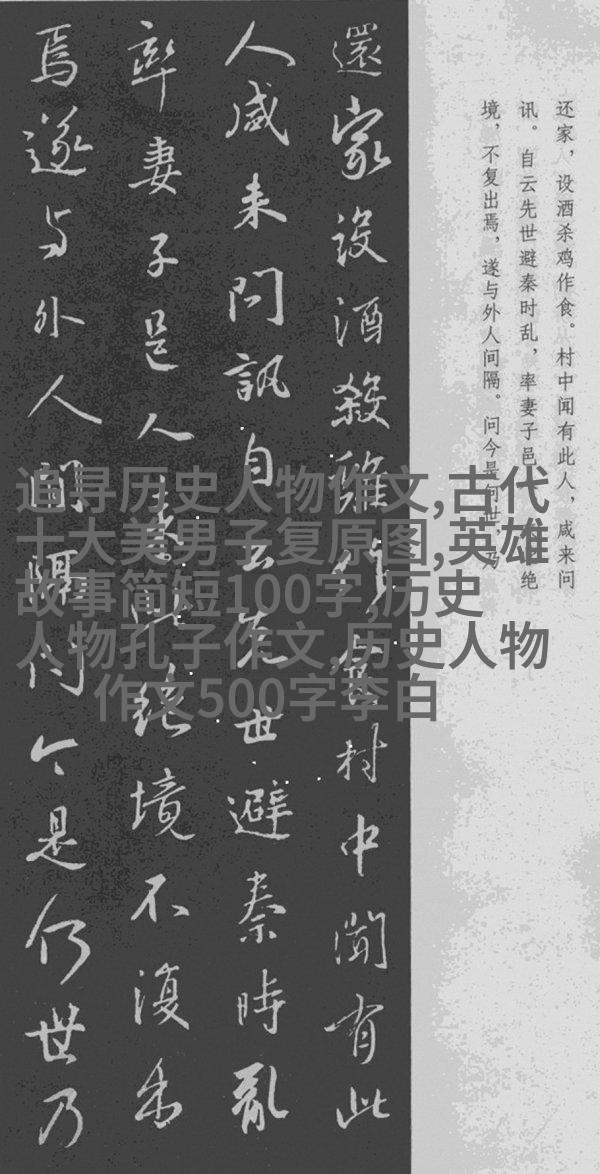 还家，设酒杀鸡作食。村中闻有此人，咸来问
讯。自云先世避秦时乱，率妻子邑绝
境，不复出焉，遂与外人间隔。问今是何世，乃
還家設酒殺雞作食村中聞有此
人咸来問訊自云先世避秦時亂
率妻子邑人来此絶境不復出
焉遂与外人間隔問今是何世乃
追寻历史人物作文,古代
十大美男子复原图,英雄
故事简短100字,历史
人物孔子作文,历史人物
作文500字李白